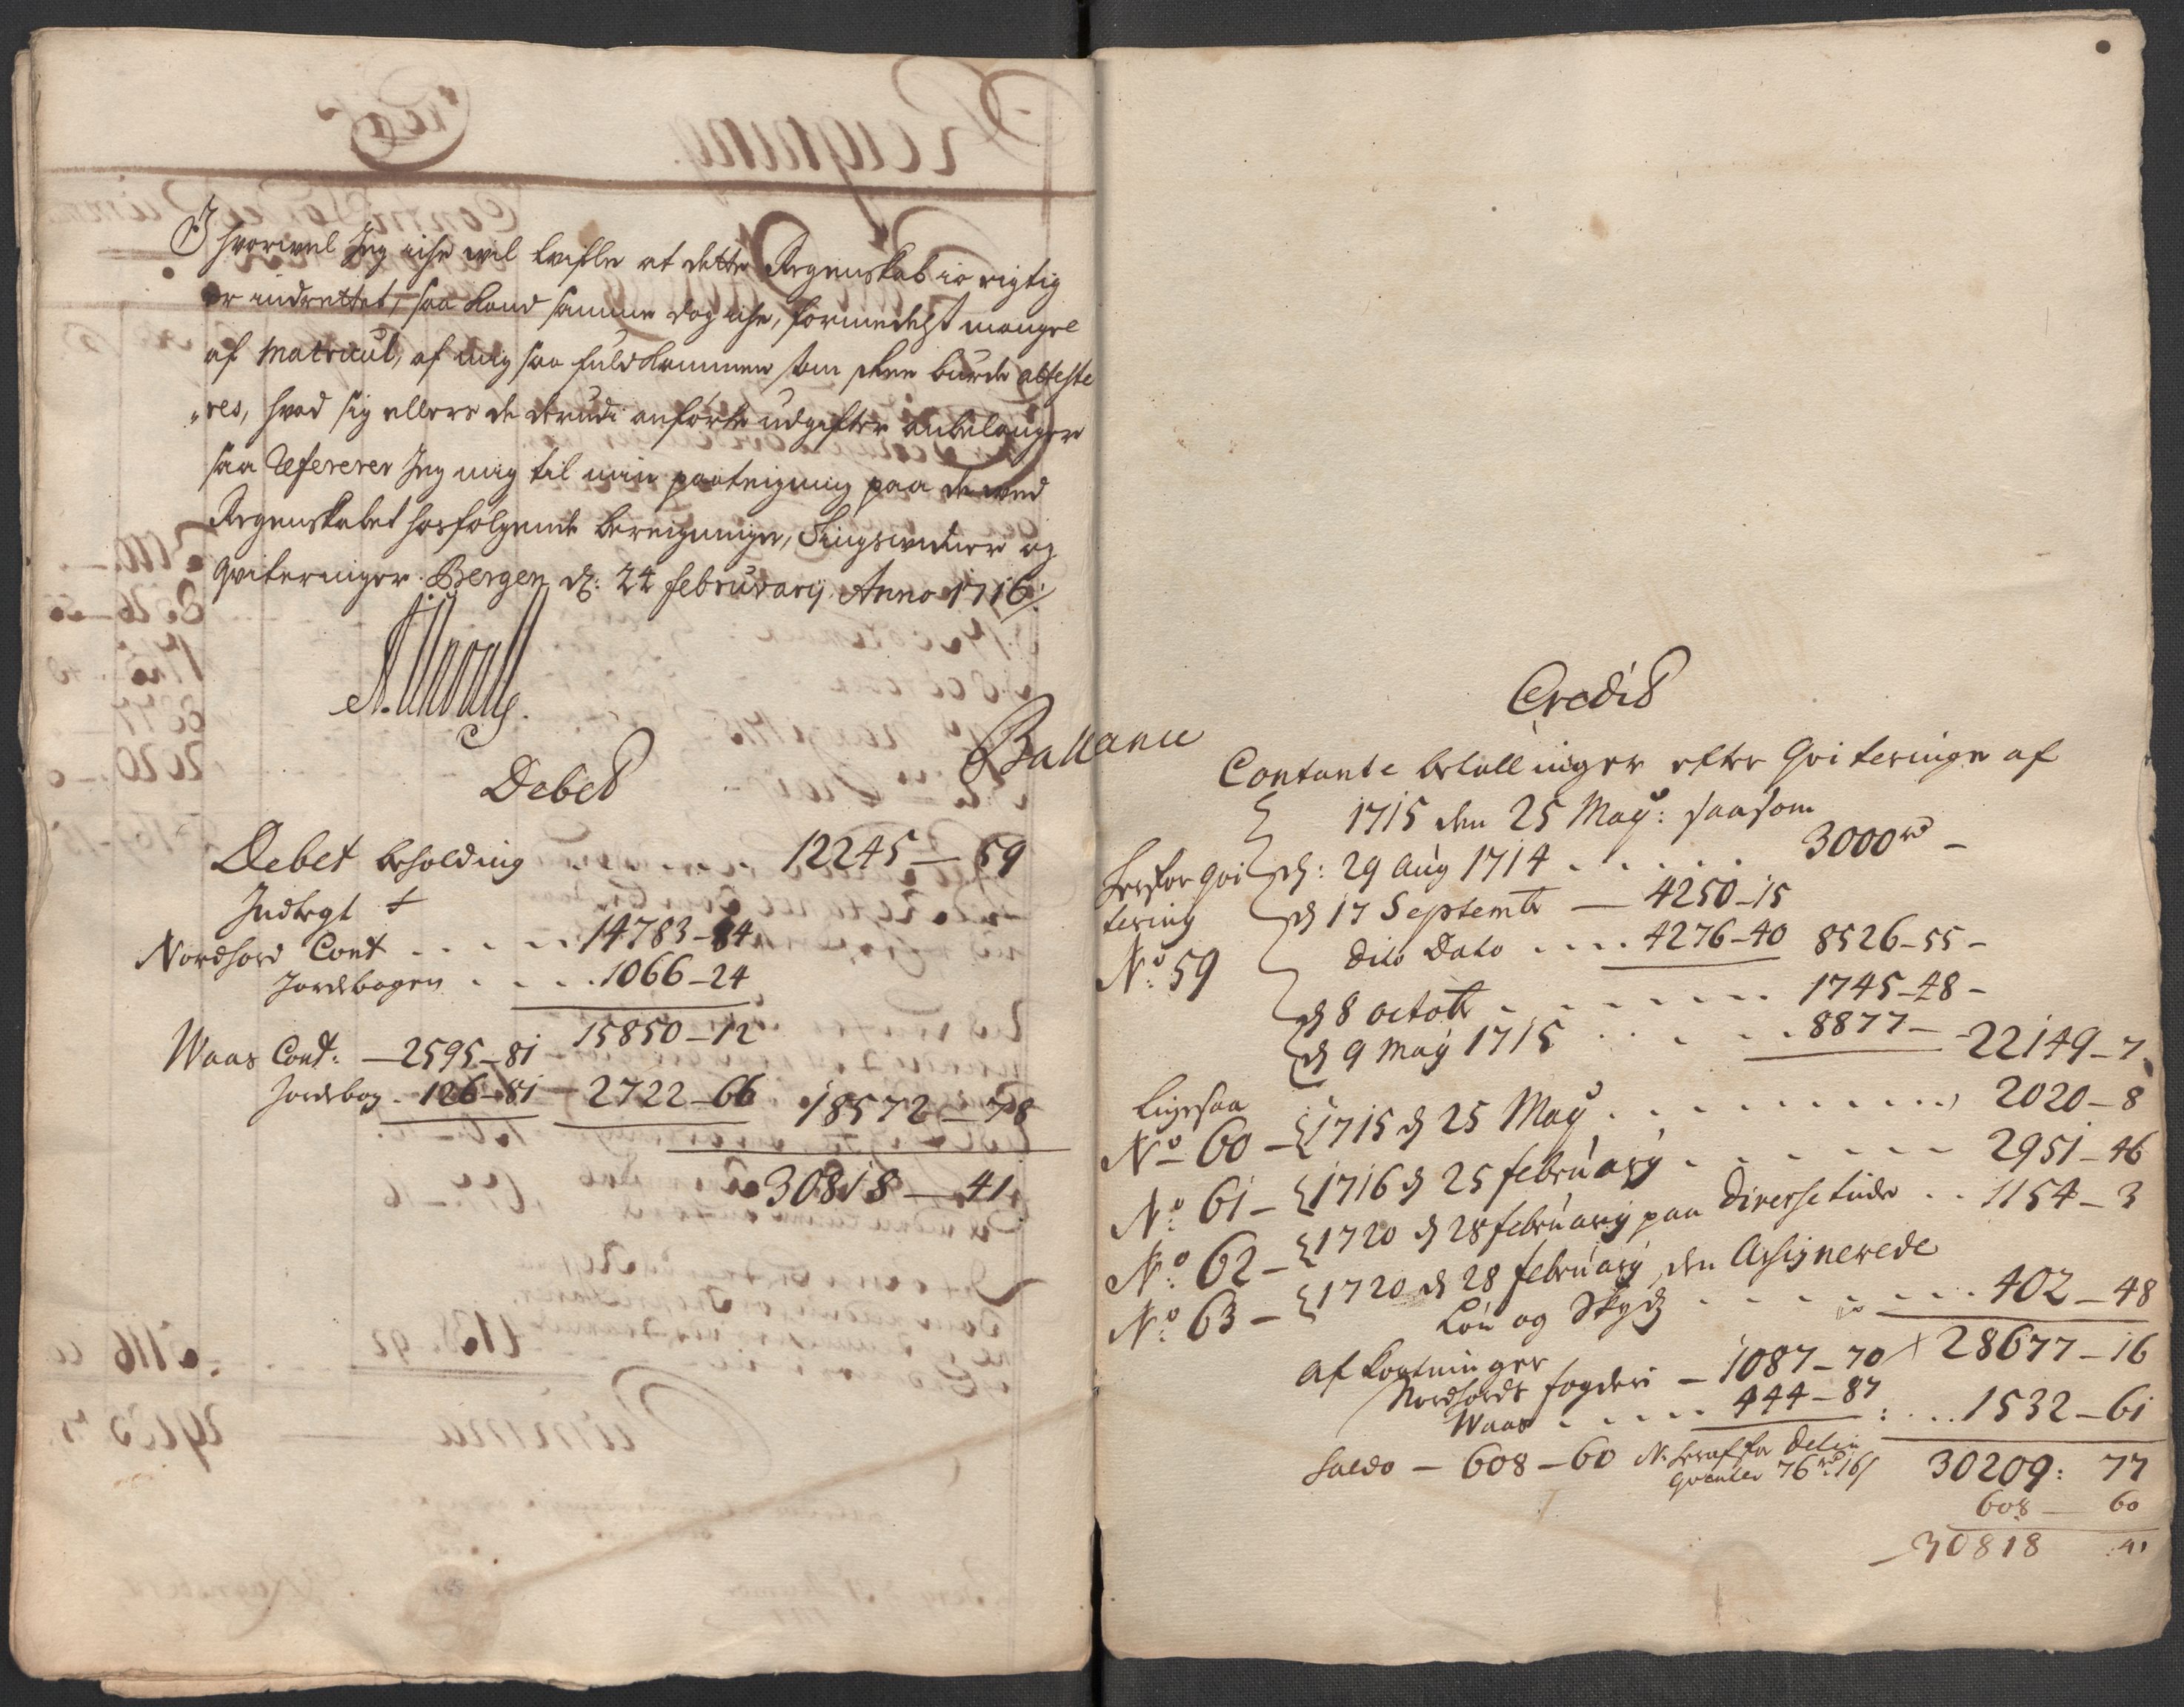 Ihvorvel Jeg iche vil tvifle at dette Regenskab io rigtig
er indrettet, saa kand samme dog iche, formedelst mangel
af Matricul, af mig saa fuldkommen som den burde atteste
"res, hvad sig ellers de derudi anførte udgifter anbelanger
saa Refererer Jeg mig til min paategning paa de ved
Regenskabet hosfølgende beregninger, Tingsvidner og
qviteringer. Bergen d: 24 februarij Anno 1716
Ballance
Debet
Debet beholding 12245 — 59
Indtegt
Nordfiord Cont . . . . 14783 – 84
Jordebogen . . . . 1066 – 24
15850 – 12
Waas Cont: — 2595 – 81
Jordebog . 126 – 81 — 2722 – 66 18572 — 78
30818 — 41
Credit
Contante betallinger efter Qviteringe af
1715 den 25 May: saasom
herfor qvi
tering
No: 59
d: 29 Aug 1714 . . . . . . 3000 rd –
d 17 Septembr — 4250 – 15
dito Dato . . . . 4276 – 40 8526 – 55 –
d 8 octobr . . . . . . . 1745 – 48 –
d 9 may 1715 . . . . . 8877 — 22149 – 7
Ligesaa
No 60 – 1715 d 25 May . . . . . . . . . . 2020 – 8
No: 61 – 1716 d 25 february . . . . . . 2951 – 46
No: 62 – 1720 d 28 february paa Diverse tider . . 1154 – 3
No: 63 – 1720 d 28 february, den Assignerede
Løn og Skyds . . . . . . . 402 – 48
28677 – 16
Afkortninger
Nordfiords fogderi — 1087 – 70
Waas . . . . . 444 – 87 : . . . 1532 – 61
Saldo — 608 – 60 76 rd 16 30209: 77
608 — 60
30818 41